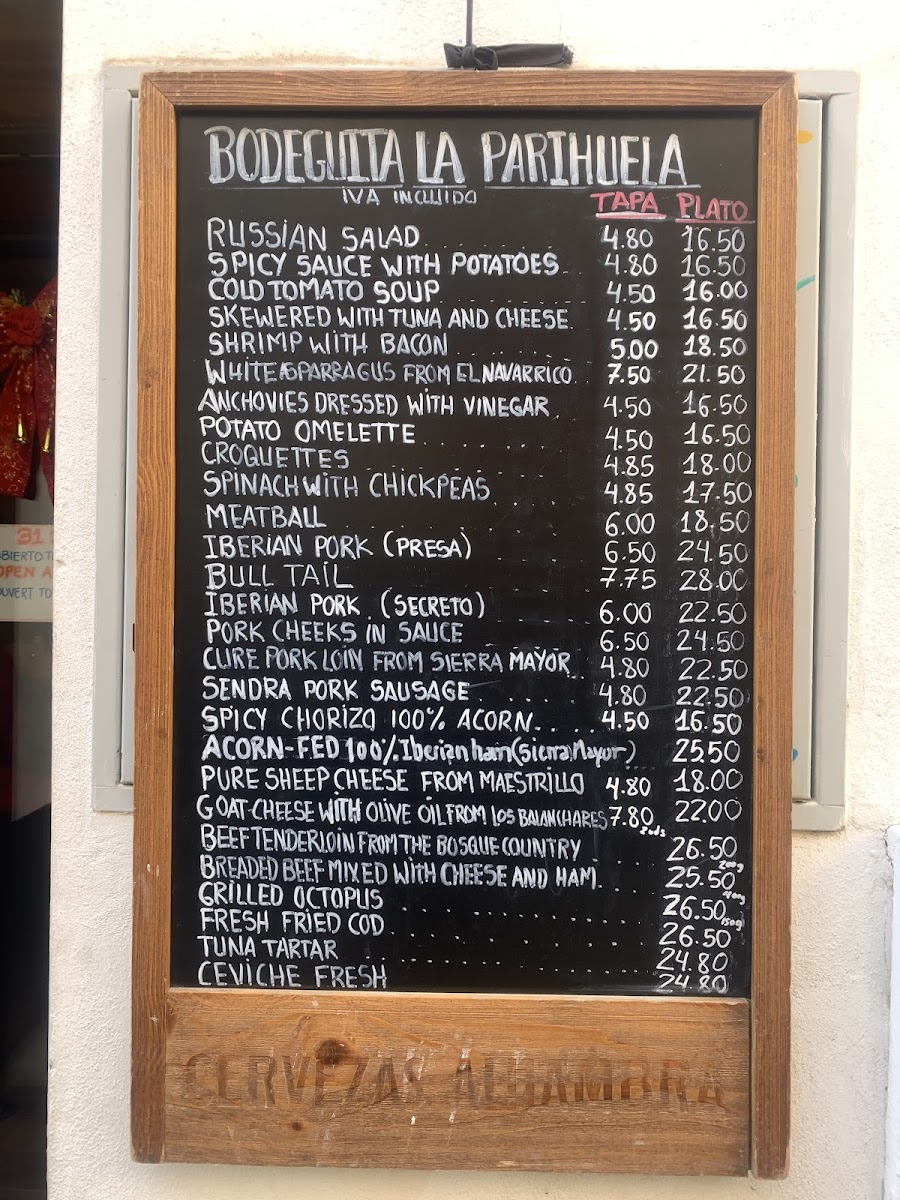 BODEGUITA LA PARIHUELA
IVA INCLUIDO
TAPA PLATO
RUSSIAN SALAD 4.80 16.50
SPICY SAUCE WITH POTATOES 4.80 16.50
COLD TOMATO SOUP 4.50 16.00
SKEWERED WITH TUNA AND CHEESE 4.50 16.50
SHRIMP WITH BACON 5.00 18.50
WHITE ASPARRAGUS FROM EL NAVARRICO 7.50 21.50
ANCHOVIES DRESSED WITH VINEGAR 4.50 16.50
POTATO OMELETTE 4.50 16.50
CROQUETTES 4.85 18.00
SPINACH WITH CHICKPEAS 4.85 17.50
MEATBALL 6.00 18.50
IBERIAN PORK (PRESA) 6.50 24.50
BULL TAIL 7.75 28.00
IBERIAN PORK (SECRETO) 6.00 22.50
PORK CHEEKS IN SAUCE 6.50 24.50
CURE PORK LOIN FROM SIERRA MAYOR 4.80 22.50
SENDRA PORK SAUSAGE 4.80 22.50
SPICY CHORIZO 100% ACORN 4.50 16.50
ACORN-FED 100% Iberian ham (Sierra Mayor) 25.50
PURE SHEEP CHEESE FROM MAESTRILLO 4.80 18.00
GOAT-CHEESE WITH OLIVE OIL FROM LOS BALANCHARES 7.80 22.00
2uds
BEEF TENDERLOIN FROM THE BOSQUE COUNTRY 26.50
200g
BREADED BEEF MIXED WITH CHEESE AND HAM 25.50
400g
GRILLED OCTOPUS 26.50
150g
FRESH FRIED COD 26.50
TUNA TARTAR 24.80
CEVICHE FRESH 24.80
CERVEZAS ALHAMBRA
31
OPEN A